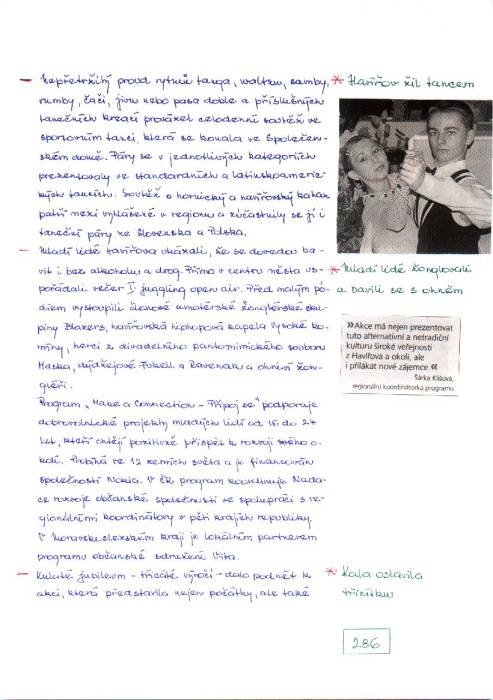 – Nepřetržitý proud rytmů tanga, waltzu, samby,
rumby, čači, jivu nebo pasa doble a příslušných
tanečních kreací provázel celodenní soutěž ve
sportovním tanci, která se konala ve Společen-
ském domě. Páry se v jednotlivých kategoriích
prezentovaly ve standardních a latinskoameric-
kých tancích. Soutěž o hornický a havířovský kahan
patří mezi vyhlášené v regionu a zúčastnily se jí i
taneční páry ze Slovenska a Polska.
– Mladí lidé Havířova ukázali, že se dovedou ba-
vit i bez alkoholu a drog. Přímo v centru města us-
pořádali večer I. juggling open air. Před malým pó-
diem vystoupili členové amatérské žonglérské sku-
piny Blazers, havířovská hiphopová kapela Vysoké ko-
míny, herci z divadelního pantomimického souboru
Maska, dýdžejové Fukell a Ravenak a ohniví žon-
gléři.
Program „Make a Connection – Připoj se" podporuje
dobrovolnické projekty mladých lidí od 16 do 24
let, kteří chtějí pozitivně přispět k rozvoji svého o-
kolí. Probíhá ve 12 zemích světa a je financován
společností Nokia. V ČR program koordinuje Nada-
ce rozvoje občanské společnosti ve spolupráci s re-
gionálními koordinátory v pěti krajích republiky.
V Moravskoslezském kraji je lokálním partnerem
programu občanské sdružení Vita.
– Kulaté jubileum – třicáté výročí – dalo podnět k
akci, která představila nejen počátky, ale také
* Havířov žil tancem
* Mladí lidé žonglovali
a bavili se s ohněm
»Akce má nejen prezentovat
tuto alternativní a netradiční
kulturu široké veřejnosti
z Havířova a okolí, ale
i přilákat nové zájemce.«
Šárka Klisová,
regionální koordinátorka programu
* Kala oslavila
třicítku
286